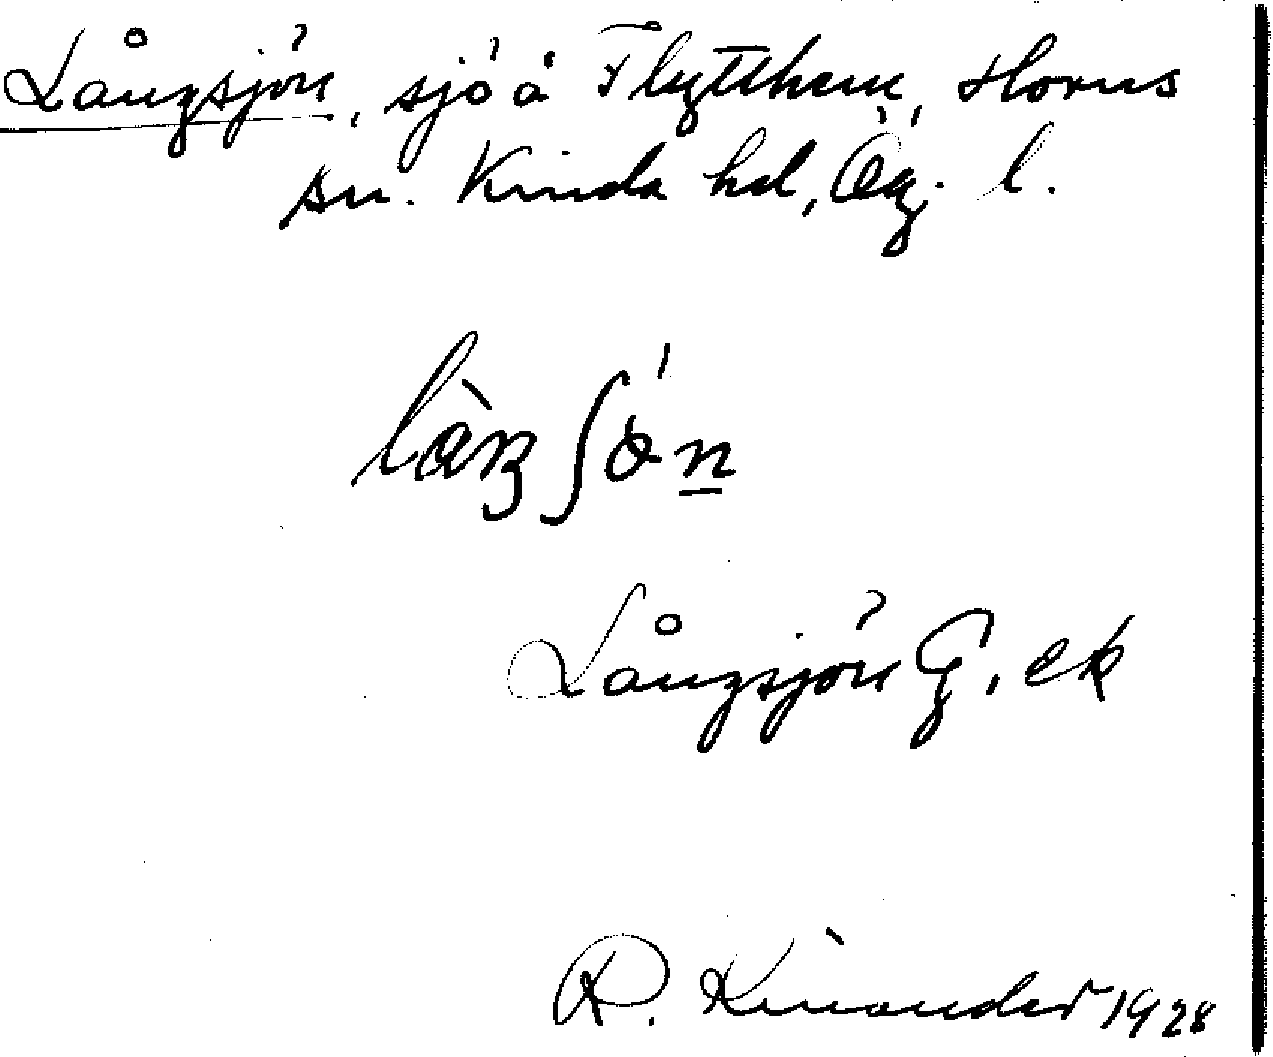 Långsjön, sjö å Flytthem, Horns
sn. Kinda hd, Ög. l.
Långsjön G. ek
R. Kinander 1928